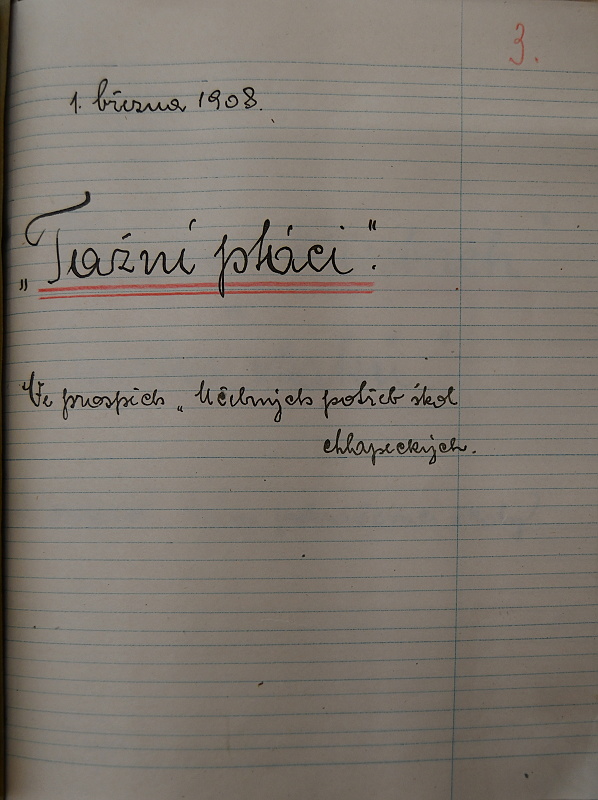 3.
1. března 1908.
„Tažní ptáci“.
Ve prospěch „Učebných potřeb škol
chlapeckých.